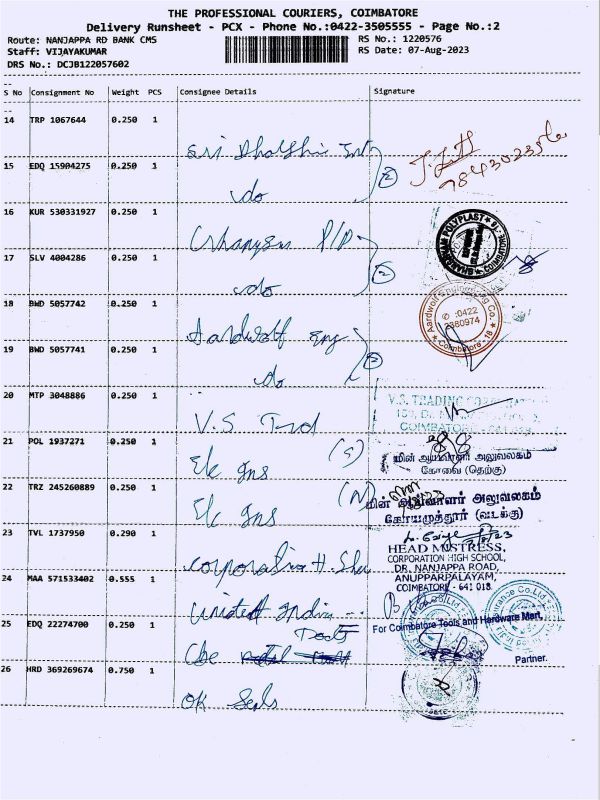 THE PROFESSIONAL COURIERS, COIMBATORE
Delivery Runsheet - PCX - Phone No.:0422-3505555 - Page No.:2
Route: NANJAPPA RD BANK CMS RS No.: 1220576
Staff: VIJAYAKUMAR RS Date: 07-Aug-2023
DRS No.: DCJB122057602
S No Consignment No Weight PCS Consignee Details Signature
14 TRP 1067644 0.250 1
Sri
15 EDQ 15904275 0.250 1
do
16 KUR 530331927 0.250 1
P/P
17 SLV 4004286 0.250 1
do
18 BWD 5057742 0.250 1
Aardwolf Eng
Aardwolf Engineering Co.
0422
2380974
Coimbatore - 18
19 BWD 5057741 0.250 1
do
20 MTP 3048886 0.250 1
V.S Trad
V.S. TRADING
COIMBATORE
21 POL 1937271 0.250 1
Ele Ins (S)
மின் ஆய்வாளர் அலுவலகம்
கோவை (தெற்கு)
22 TRZ 245260889 0.250 1
Ele Ins (N)
மின் ஆய்வாளர் அலுவலகம்
கோயமுத்தூர் (வடக்கு)
23 TVL 1737950 0.290 1
Corporation H.
HEAD MISTRESS,
CORPORATION HIGH SCHOOL,
DR. NANJAPPA ROAD,
ANUPPARPALAYAM,
COIMBATORE - 641 018
24 MAA 571533402 0.555 1
United India
25 EDQ 22274700 0.250 1
Cbe Tools
For Coimbatore Tools and Hardware Mart,
Partner.
26 HRD 369269674 0.750 1
OK Seals